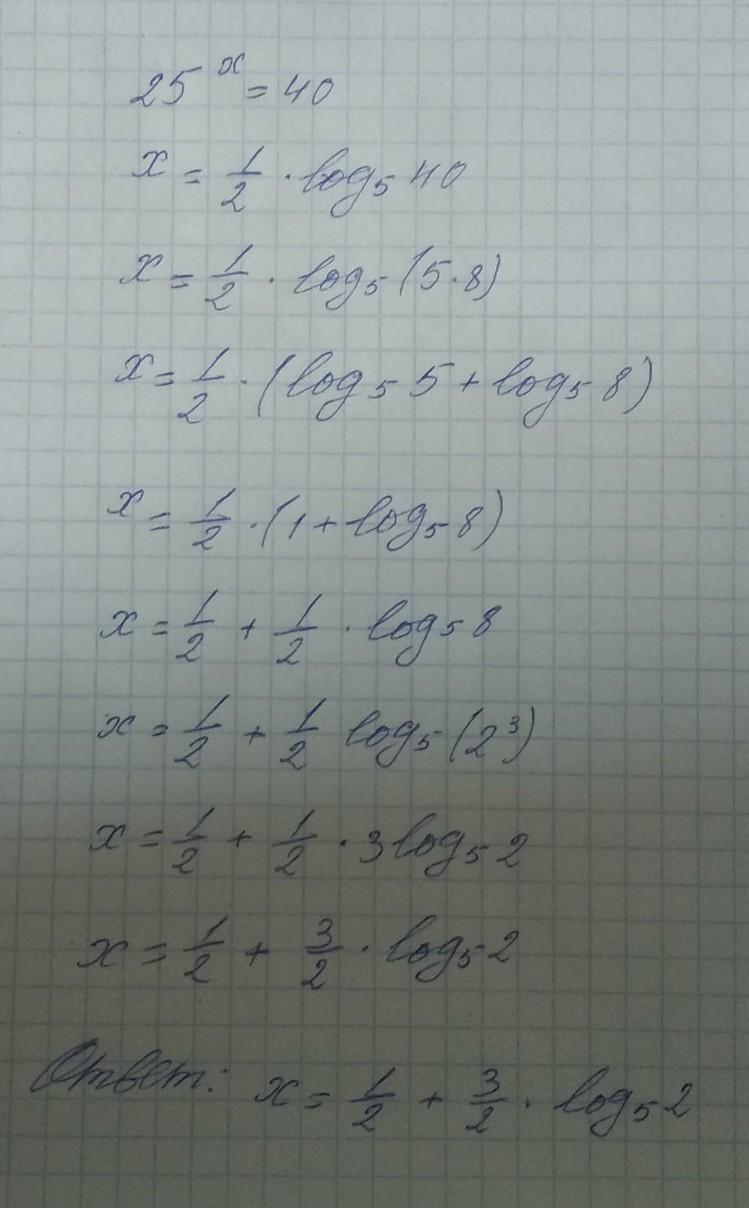 25^x = 40
x = 1/2 · log₅ 40
x = 1/2 · log₅ (5·8)
x = 1/2 · (log₅ 5 + log₅ 8)
x = 1/2 · (1 + log₅ 8)
x = 1/2 + 1/2 · log₅ 8
x = 1/2 + 1/2 log₅ (2³)
x = 1/2 + 1/2 · 3 log₅ 2
x = 1/2 + 3/2 · log₅ 2
Ответ: x = 1/2 + 3/2 · log₅ 2